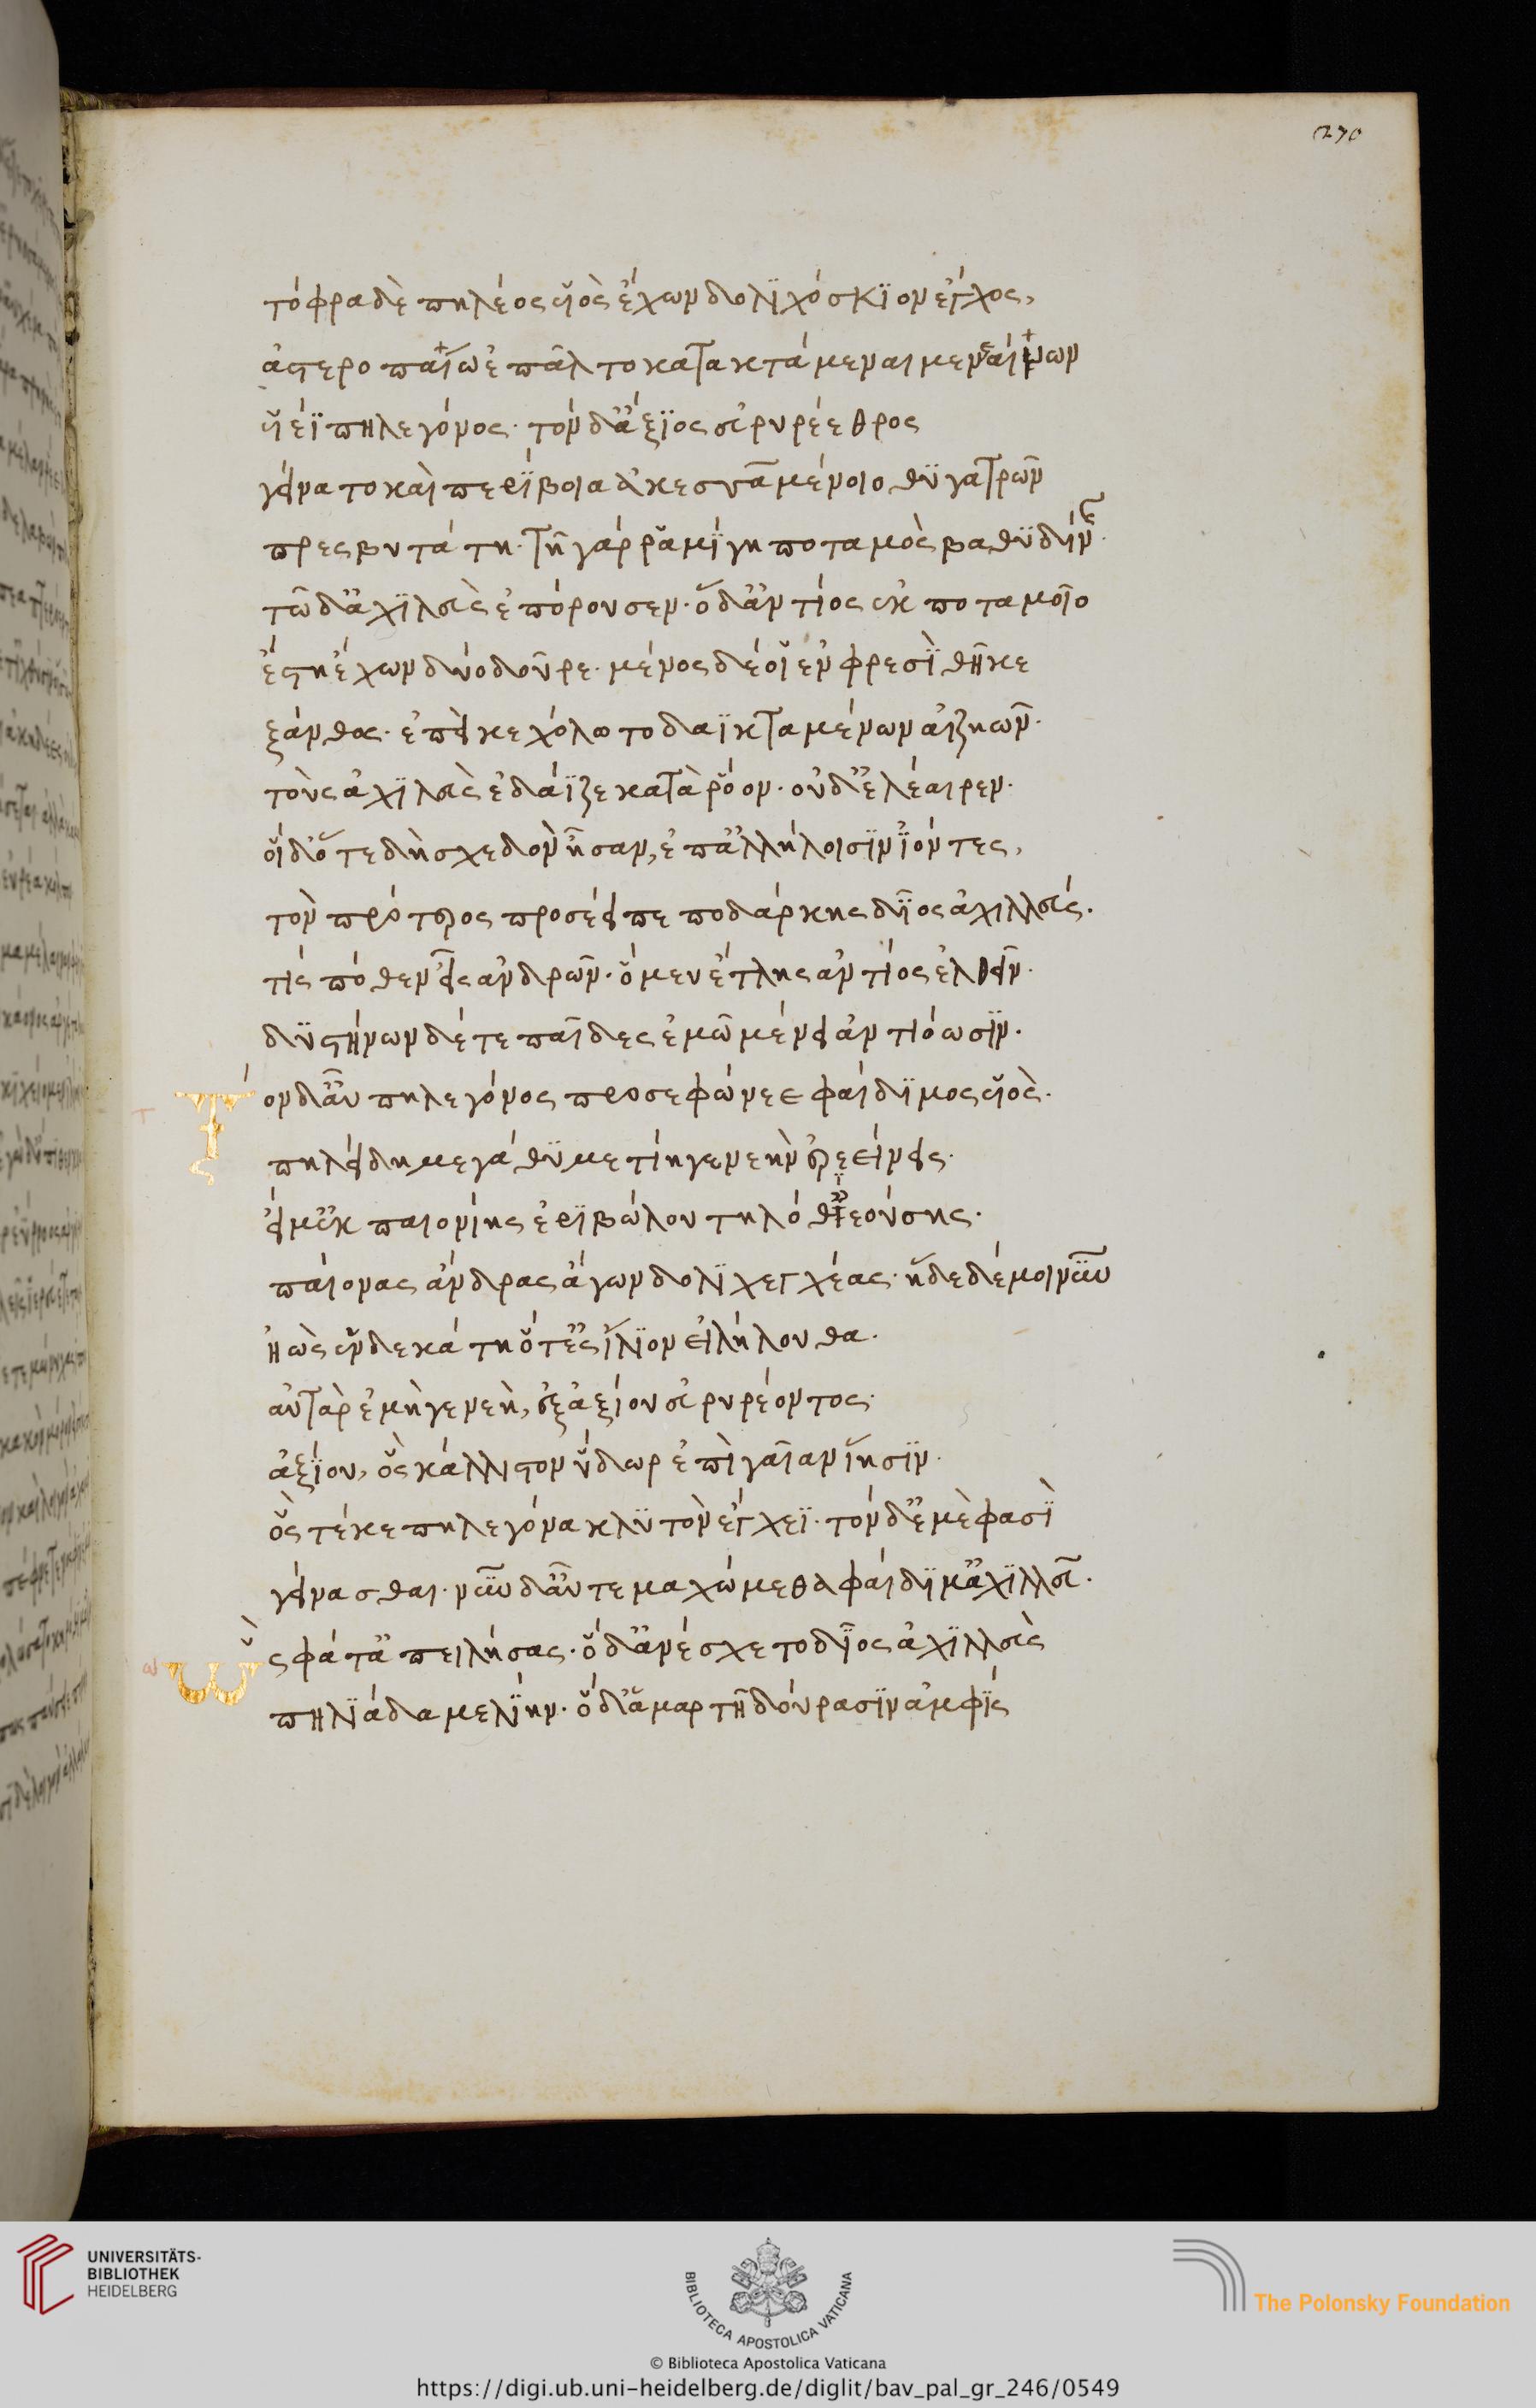 270
τόφρα δὲ πηλέος υἱὸς ἔχων δολϊχόσκϊον ἔγχος,
ἀστεροπαίω ἐπᾶλτο κατακτάμεναι μενεαίνων
υἱέϊ πηλεγόνος· τὸν δ' ἄξϊος εὐρυρέεθρος
γείνατο καὶ περίβοια ἀκεσσαμένοιο θϋγατρῶν
πρεσβυτάτη· τῆ γάρ ῥα μίγη ποταμὸς βαθϋδίνης·
τῶ δ' ἀχϊλεὺς ἐπόρουσεν· ὁ δ' ἀντίος ἐκ ποταμοῖο
ἔστη ἔχων δύο δοῦρε· μένος δέ οἱ ἐν φρεσὶ θῆκε
ξάνθος· ἐπεὶ κεχόλωτο δαϊκταμένων αἰζηῶν·
τοὺς ἀχϊλεὺς ἐδάϊζε κατὰ ῥόον· οὐδ' ἐλέαιρεν·
οἱ δ' ὅτε δὴ σχεδὸν ἦσαν, ἐπ' ἀλλήλοισϊν ἰόντες,
τὸν πρότερος προσέειπε ποδάρκης δῖος ἀχιλλεύς·
τίς πόθεν εἶς ἀνδρῶν· ὅ μευ ἔτλης ἀντίος ἐλθεῖν·
δϋστήνων δέ τε παῖδες ἐμῶ μένει ἀντιόωσϊν·
Τὸν δ' αὖ πηλεγόνος προσεφώνεε φαίδϊμος υἱὸς·
πηλείδη μεγάθϋμε τίη γενεὴν ἐρεείνεις·
εἴμ' ἐκ παιονίης ἐρϊβώλου τηλόθ' ἐούσης·
παίονας ἄνδρας ἄγων δολϊχεγχέας· ἥδε δέ μοι νῦν
ἠὼς ἑνδεκάτη ὅτ' ἐς ἴλϊον εἰλήλουθα·
αὐτὰρ ἐμὴ γενεὴ, ἐξ ἀξίου εὐρυρέοντος·
ἀξϊου, ὃς κάλλιστον ὕδωρ ἐπὶ γαῖαν ἵησϊν·
ὃς τέκε πηλεγόνα κλϋτὸν ἔγχεϊ· τὸν δ' ἐμὲ φασὶ
γείνασθαι· νῦν δ' αὖτε μαχώμεθα φαίδϊμ' ἀχϊλλεῦ·
Ὣς φάτ' ἀπειλήσας· ὁ δ' ἀνέσχετο δῖος ἀχϊλλεὺς
πηλϊάδα μελϊην· ὁ δ' ἁμαρτῆ δούρασϊν ἀμφϊς
UNIVERSITÄTS-
BIBLIOTHEK
HEIDELBERG
BIBLIOTECA APOSTOLICA VATICANA
The Polonsky Foundation
© Biblioteca Apostolica Vaticana
https://digi.ub.uni-heidelberg.de/diglit/bav_pal_gr_246/0549